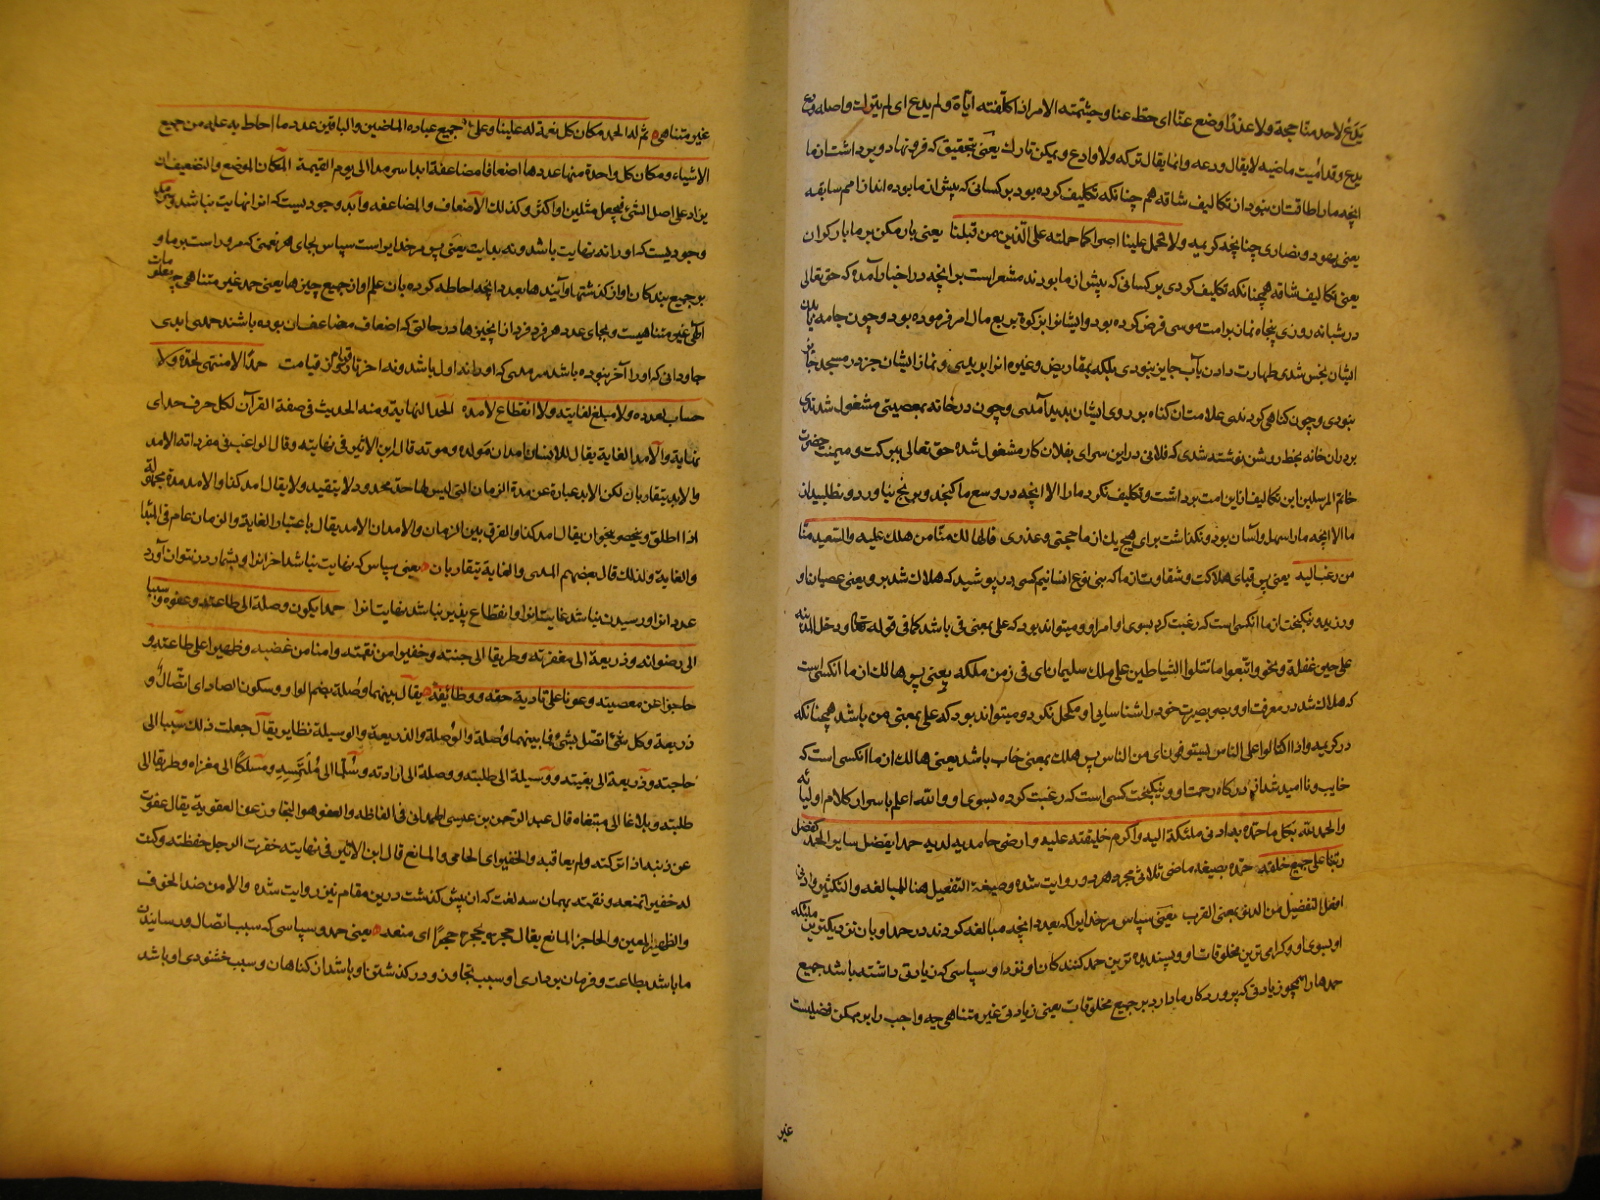 یَدَعْ لاحد منّا حجة ولا عذرًا وضع عنّا ای حطّ عنا وجشّمته الامر اذا کلّفته ایّاه ولم یدع ای لم یترک واصله ودع
یدع وقد امیت ماضیه لا یقال ودعه وانما یقال ترکه ولا وادع ولکن تارک یعنی بتحقیق که فرو نهاد و برداشت از ما
آنچه ما را طاقت آن نبود از تکالیف شاقه هم چنانکه تکلیف کرده بود بر کسانی که پیش از ما بوده اند از امم سابقه
یعنی یهود و نصاری چنانچه کریمه ولا تحمل علینا اصرا کما حملته علی الذین من قبلنا یعنی بار مکن بر ما بار گران
یعنی تکالیف شاقه همچنانکه تکلیف کردی بر کسانی که پیش از ما بودند مشعر است بر آنچه در اخبار آمده که حق تعالی
در شبانه روزی پنجاه نماز بر امت موسی فرض کرده بود و ایشانرا بزکوة ربع مال امر فرموده بود و چون جامه یا بدن
ایشان نجس شدی طهارت دادن بآب جایز نبودی بلکه بمقاریض و غیره آنرا بریدی و نماز ایشان جز در مسجد جایز
نبودی و چون گناهی کردندی علامت آن گناه بر روی ایشان پدید آمدی و چون در خانه بمعصیتی مشغول شدندی
بر در آن خانه بخط روشن نوشته شدی که فلانی در این سرای بفلان کار مشغول شده حق تعالی ببرکت و میمنت حضرت
خاتم المرسلین این تکالیف از این امت برداشت و تکلیف نکرد ما را الا آنچه در وسع ما گنجد و برنج نیاورد و نطلبید از
ما الا آنچه ما را سهل و آسان بود و نگذاشت برای هیچ یک از ما حجتی و عذری فالهالک منّا من هلک علیه والسعید منّا
من رغب الیه یعنی پس قبای هلاکت و شقاوت از ما که بنی نوع انسانیم کسی در پوشید که هلاک شد بر وی یعنی عصیان او
ورزید و نیکبخت از ما آنکسی است که رغبت کرد بسوی او امر او و میتواند بود که علی بمعنی فی باشد کما فی قوله تعالی ودخل المدینه
علی حین غفلة و نحو واتبعوا ما تتلوا الشیاطین علی ملک سلیمان ای فی زمن ملکه یعنی پس هالک از ما آنکسی است
که هلاک شد در معرفت او و بصر بصیرت خود را شناسایی او مکحل نکرد و میتواند بود که علی بمعنی من باشد همچنانکه
در کریمه واذا اکتالوا علی الناس یستوفون ای من الناس پس هلک بمعنی خاب باشد یعنی هالک از ما آنکسی است که
خایب و ناامید شد از درگاه رحمت او و نیکبخت کسی است که رغبت کرده بسوی او والله اعلم باسرار کلام اولیائه
والحمد لله بکل ما حمده به ادنی ملئکته الیه واکرم خلیقته علیه وارضی حامدیه لدیه حمدا یفضل سایر الحمد کفضل
ربّنا علی جمیع خلقه حمده بصیغه ماضی ثلاثی مجرد و روایت شده وصیغة التفعیل هنا للمبالغه والتکثیر وادنی
افعل التفضیل من الدنو بمعنی القرب یعنی سپاس مر خدایرا که بعدد آنچه مبالغه کردند در حمد او بآن نزدیکترین ملئکه
او بسوی او و گرامی ترین مخلوقات او و پسندیده ترین حمد کنندگان او نزد او سپاسی که زیادتی داشته باشد جمیع
حمدها را همچو زیادتی که پروردگار ما دارد بر جمیع مخلوقات یعنی زیادتی غیر متناهی چه واجب را بر ممکن فضلیست
غیر
غیر متناهی ثم له الحمد مکان کل نعمة له علینا وعلی جمیع عباده الماضین والباقین عدد ما احاط به علمه من جمیع
الاشیاء ومکان کل واحدة منها عددها اضعافا مضاعفة ابدا سرمدا الی یوم القیمة المکان الموضع والتضعیف ان
یزاد علی اصل الشئ فیجعل مثلین او اکثر وکذلک الاضعاف والمضاعفه وابد وجودیست که آنرا نهایت نباشد و سرمد
وجودیست که او را نه نهایت باشد و نه بدایت یعنی پس مر خدایراست سپاس بجای هر نعمتی که مر او راست بر ما و
بر جمیع بندگان او از گذشتها و آیندها بعدد آنچه احاطه کرده بآن علم او از جمیع چیزها یعنی حمد غیر متناهی چه معلومات
الهی غیر متناهیست و بجای عدد هر فرد فرد از این چیزها در حالتی که اضعاف مضاعف آن بوده باشند حمدی ابدی
جاودانی که او را آخر نبوده باشد سرمدی که او را نه اول باشد و نه آخر تا روز قیامت حمدًا لا منتهی لحدّه ولا
حساب لعدده ولا مبلغ لغایته ولا انقطاع لامده الحد النهایة ومنه الحدیث فی صفة القرآن لکل حرف حد ای
نهایة والامد الغایة یقال للانسان امدان مولده وموته قال ابن الاثیر فی نهایته وقال الراغب فی مفرداته الامد
والابد یتقاربان لکن الابد عبارة عن مدة الزمان التی لیس لها حد محدود لا یتقید ولا یقال ابد کذا والامد مدة لها حد مجهول
اذا اطلق وینحصر نحو ان یقال امد کذا والفرق بین الزمان والامد ان الامد یقال باعتبار الغایة والزمان عام فی المبدا
والغایة ولذلک قال بعضهم المدی والغایة یتقاربان یعنی سپاسی که نهایت نباشد آخر آنرا و بشمار در نتوان آورد
عدد آنرا و رسیدن نباشد غایت آنرا و انقطاع پذیر نباشد نهایت آنرا حمدا یکون وصلة الی طاعته وعفوه وسببا
الی رضوانه وذریعة الی مغفرته وطریقا الی جنته وخفیرا من نقمته وامنا من غضبه وظهیرا علی طاعته و
حاجزا عن معصیته وعونا علی تادیة حقه ووظائفه یقال بینهما وصلة بضم الواو وسکون الصاد ای اتّصال و
ذریعة وکل شئ اتصل بشئ فما بینهما وُصلة والوُصلة والذریعة والوسیلة نظایر یقال جعلت ذلک سببا الی
حاجته وذریعة الی بغیته ووسیلة الی طلبته ووصلة الی ارادته وسُلّما الی مُلتَمسه ومسلکًا الی مغزاه وطریقا الی
طلبته وبلاغا الی مبتغاه قال عبد الرحمن بن عیسی الهمدانی فی الفاظه والعفو هو التجاوز عن العقوبة یقال عفوت
عن ذنبه اذا ترکته ولم یعاقبه والخفیر ای الحامی والمانع قال ابن الاثیر فی نهایته خفرت الرجل حفظته وکنت
له خفیرا تمنعه ونقمته بهمان سه لغت که از پیش گذشت در این مقام نیز روایت شده والامن ضد الخوف
والظهیر المعین والحاجز المانع یقال حجزه یحجزه حجزًا ای منعه یعنی حمد و سپاسی که سبب اتصال و رسانیدن
ما باشد بطاعت و فرمان برداری او و سبب تجاوز و درگذشتن او باشد از گناهان و سبب خشنودی او باشد